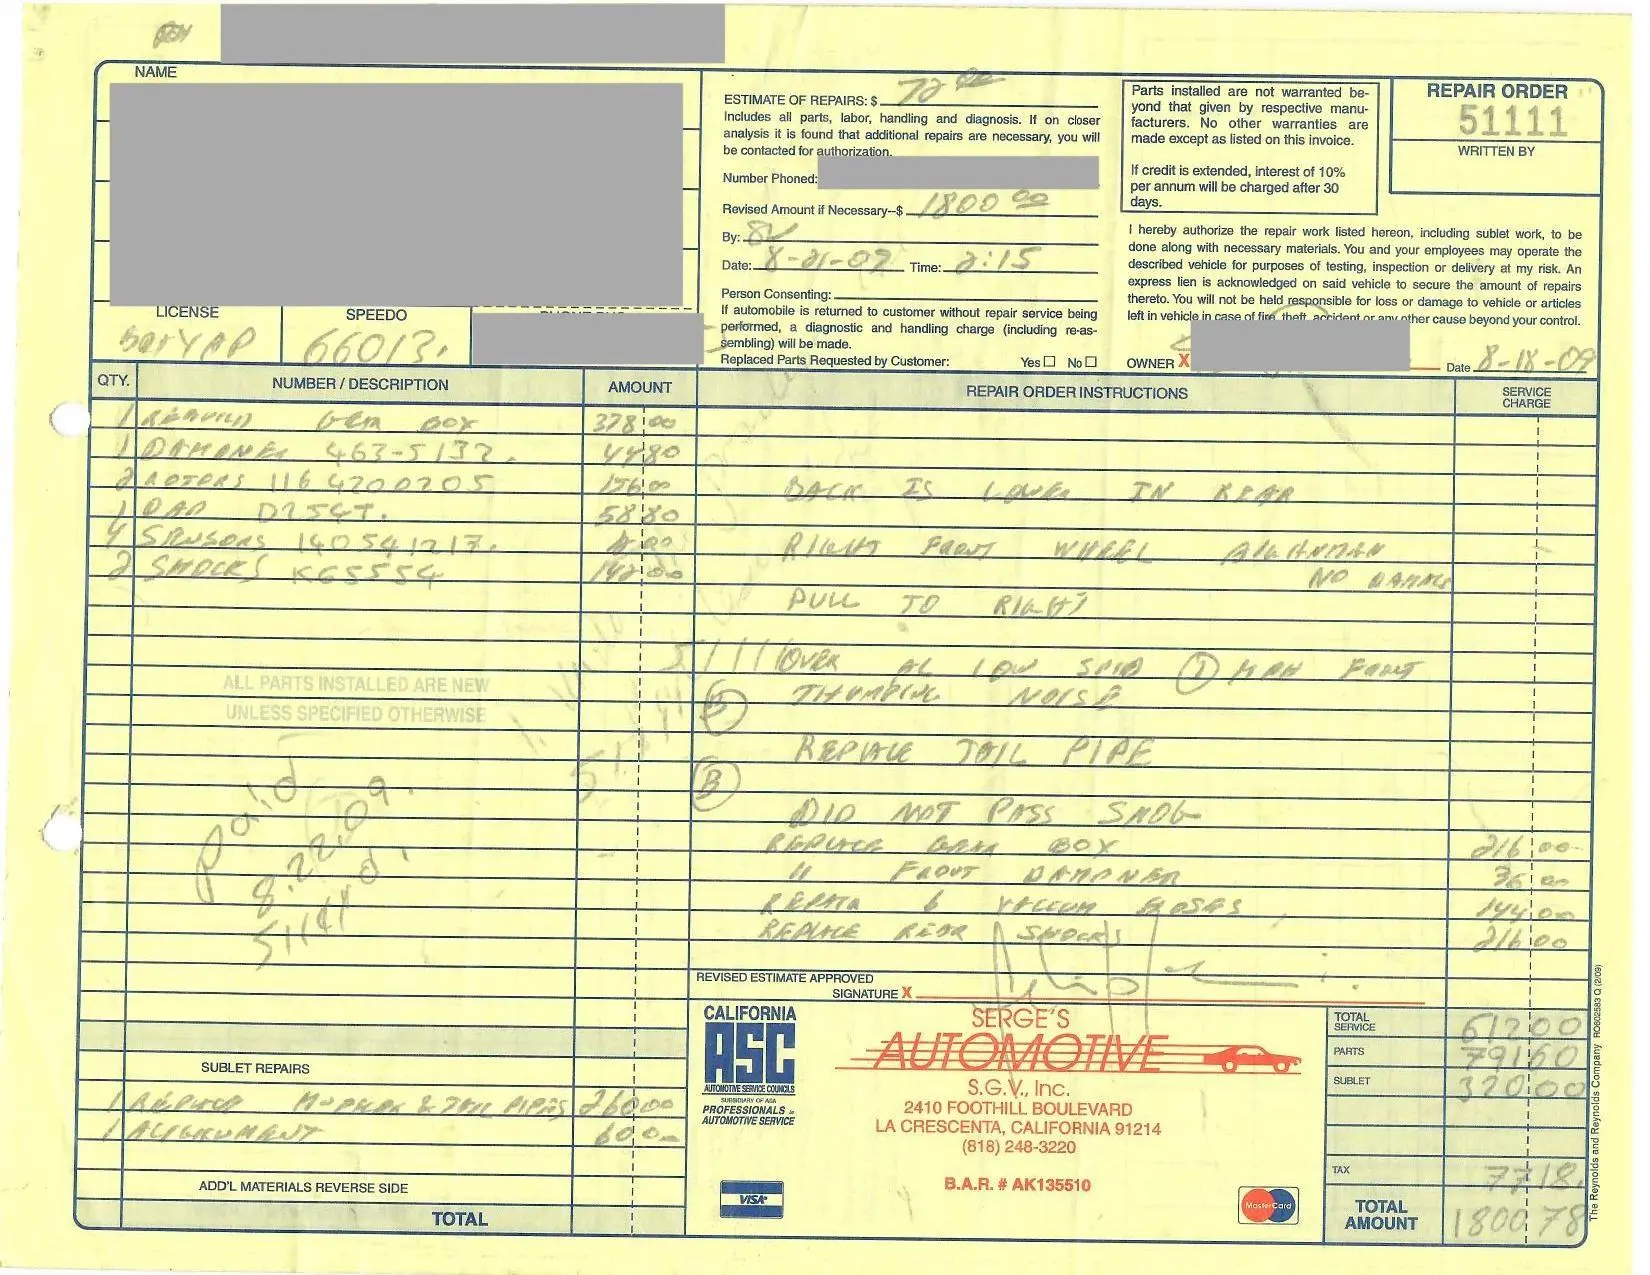 NAME
ESTIMATE OF REPAIRS: $ 72 00
Includes all parts, labor, handling and diagnosis. If on closer
analysis it is found that additional repairs are necessary, you will
be contacted for authorization.
Number Phoned:
Revised Amount if Necessary--$ 1800 00
By: SV
Date: 8-21-09 Time: 2:15
Person Consenting:
If automobile is returned to customer without repair service being
performed, a diagnostic and handling charge (including re-as-
sembling) will be made.
Replaced Parts Requested by Customer: Yes ☐ No ☐
Parts installed are not warranted be-
yond that given by respective manu-
facturers. No other warranties are
made except as listed on this invoice.
If credit is extended, interest of 10%
per annum will be charged after 30
days.
REPAIR ORDER
51111
WRITTEN BY
I hereby authorize the repair work listed hereon, including sublet work, to be
done along with necessary materials. You and your employees may operate the
described vehicle for purposes of testing, inspection or delivery at my risk. An
express lien is acknowledged on said vehicle to secure the amount of repairs
thereto. You will not be held responsible for loss or damage to vehicle or articles
left in vehicle in case of fire, theft, accident or any other cause beyond your control.
OWNER X Date 8-18-09
LICENSE SPEEDO
66013.
QTY. NUMBER / DESCRIPTION AMOUNT
1 REBUILD GEAR BOX 378 00
1 DAMPNER 463-5132. 44 80
2 ROTORS 116 4200205 156 00
1 PAD D254T. 58 80
4 SENSORS 140541217. 00
2 SHOCKS KG5554 142 00
ALL PARTS INSTALLED ARE NEW
UNLESS SPECIFIED OTHERWISE
Paid
8.22.09.
SUBLET REPAIRS
1 REPLACE & TAIL PIPES 260 00
1 ALIGNMENT 60 00
ADD'L MATERIALS REVERSE SIDE
TOTAL
REPAIR ORDER INSTRUCTIONS SERVICE CHARGE
BACK IS LOWER IN REAR
RIGHT FRONT WHEEL
NO DAMAGE
PULL TO RIGHT
OVER AT LOW SPEED FRONT
THUMPING NOISE
B
REPLACE TAIL PIPE
B
DID NOT PASS SMOG
REPLACE GEAR BOX 216 00
" FRONT DAMPNER 36 00
REPAIR 6 VACCUM HOSES 144 00
REPLACE REAR SHOCKS 216 00
REVISED ESTIMATE APPROVED
SIGNATURE X
CALIFORNIA
ASC
AUTOMOTIVE SERVICE COUNCILS
SUBSIDIARY OF ASA
PROFESSIONALS in
AUTOMOTIVE SERVICE
VISA
SERGE'S
AUTOMOTIVE
S.G.V., Inc.
2410 FOOTHILL BOULEVARD
LA CRESCENTA, CALIFORNIA 91214
(818) 248-3220
B.A.R. # AK135510
MasterCard
TOTAL SERVICE 612 00
PARTS 791 60
SUBLET 320 00
TAX 77 18.
TOTAL AMOUNT 1800 78
The Reynolds and Reynolds Company RO602583 Q (2/09)